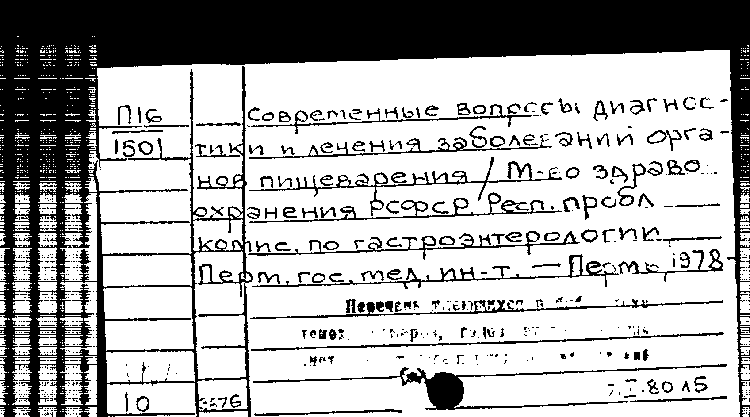 П16 Современные вопросы диагнос-
1501 тики и лечения заболеваний орга-
нов пищеварения / М-во здраво
охранения РСФСР. Респ. пробл
комис. по гастроэнтерологии
Перм. гос. мед. ин-т. — Пермь, 1978-
Перечень имеющихся в
томов,
лет
10 3576 7.I.80 л5